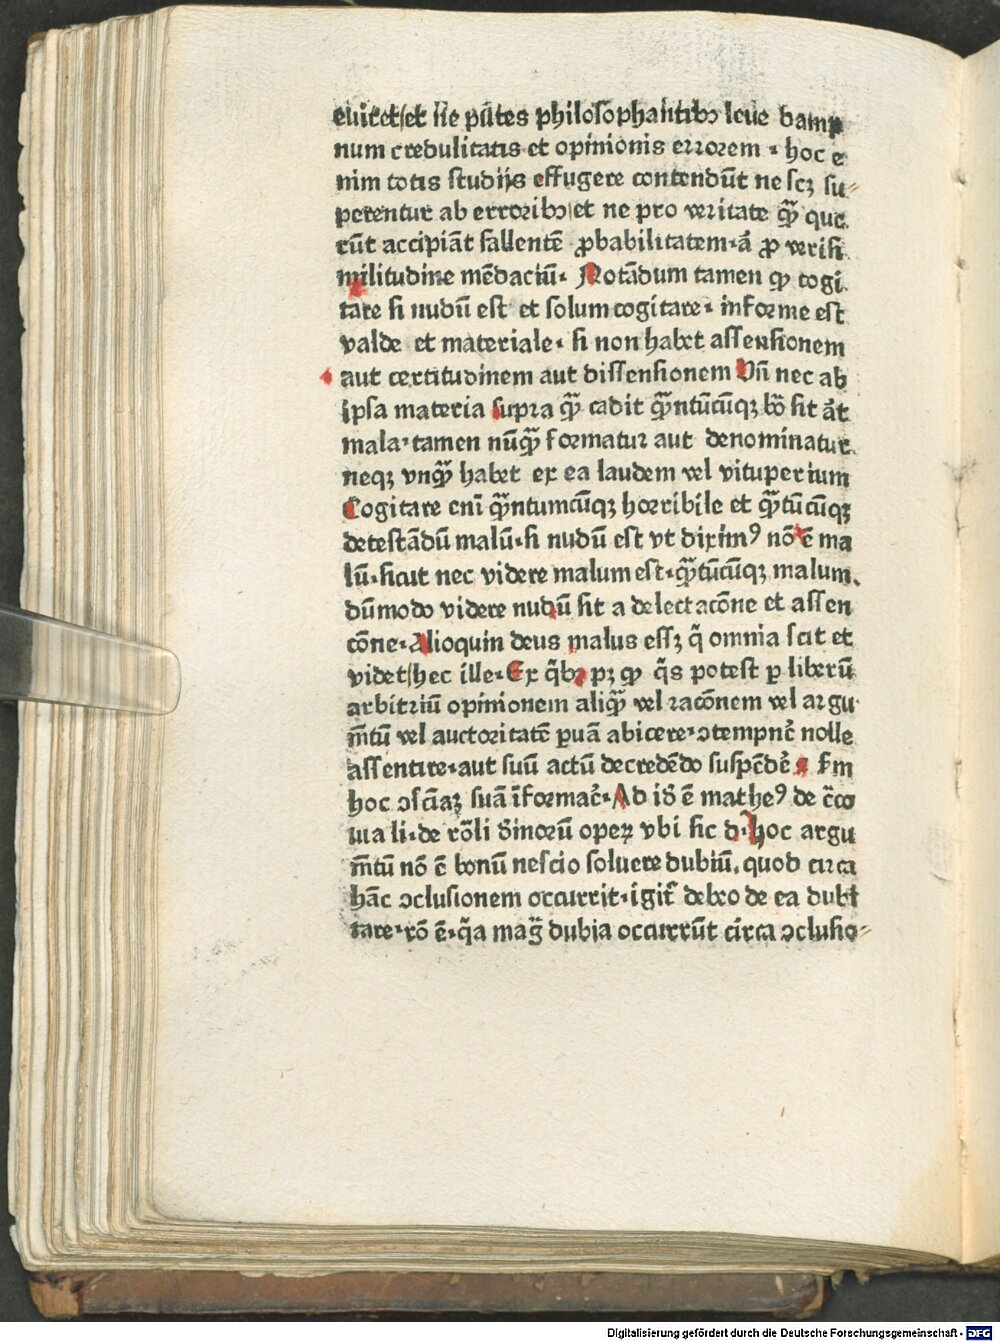 euitet/et ne pūtes philosophantibꝫ leue damp
num credulitatis et opinionis errorem · hoc e
nim totis studijs effugere contendūt ne scꝫ su⸗
perentur ab erroribꝫ/et ne pro veritate qꝫ̄ que
rūt accipiāt fallentē ꝓbabilitatem·ā ꝓ verisi
militudine mēdaciū· Notādum tamen ꝙ cogi
tare si nudū est et solum cogitare· informe est
valde et materiale· si non habet assensionem
aut certitudinem aut dissensionem Vñ nec ab
ipsa materia supra quā cadit quāntūcūqꝫ bō sit āt
mala·tamen nūquā formatur aut denominatur
neqꝫ vnquā habet ex ea laudem vel vituperium
Cogitare eni quāntumcūqꝫ horribile et quātūcūqꝫ
detestādū malū·si nudū est vt diximꝰ nō ē ma
lū·sicut nec videre malum est·quātūcūqꝫ malum
dūmodo videre nudū sit a delectacōne et assen
cōne·Alioquin deus malus essꝫ q̄ omnia scit et
videt/hec ille·Ex q̄bꝫ pꝫ ꝙ q̄s potest ꝑ liberū
arbitriū opinionem aliquā vel racōnem vel argu
m̄tū vel auctoritatē ꝑuā abicere·ꝯtempnē nolle
assentire·aut suū actū decredēdo suspēdē· fm
hoc ꝯsciāꝫ suā īformaē·Ad id ē matheꝰ de c̄co
uia li·de rōli dīnorū operꝫ vbi sic d·hoc argu
m̄tū nō ē bonū nescio soluere dubiū·quod circa
hāc ꝯclusionem occurrit·igit̄ debeo de ea dubi
tare·rō ē·q̄a mag̃ dubia occurrūt circa ꝯclusio⸗
Digitalisierung gefördert durch die Deutsche Forschungsgemeinschaft - DFG